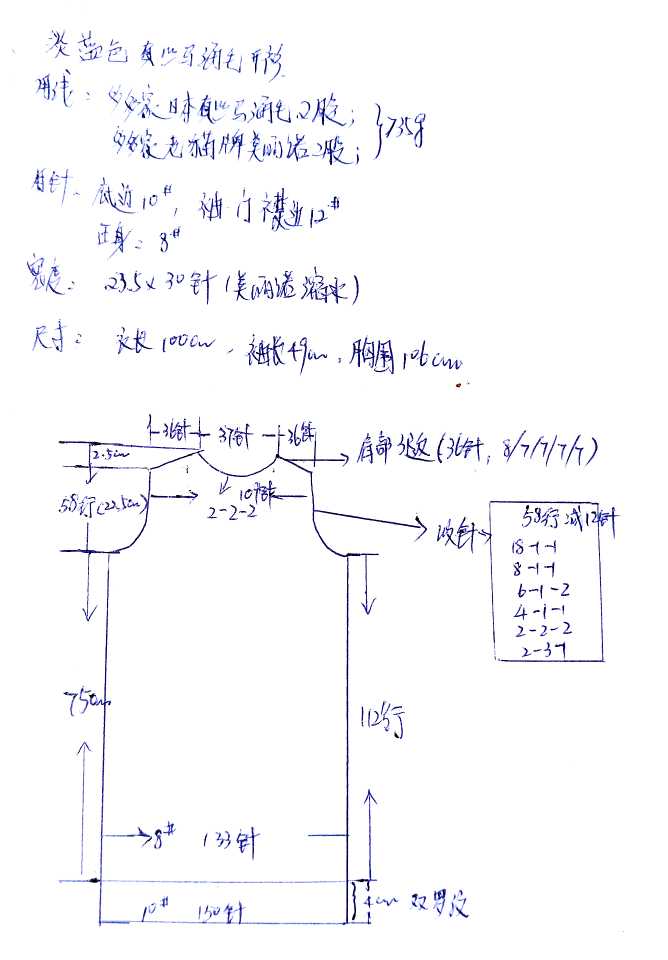 淡蓝色真丝马海毛开衫
用线: 多多家日本真丝马海毛2股;
多多家老示范牌美丽诺2股;
}735g
用针: 底边10#, 袖·门襟边12#
正身: 8#
密度: 23.5×30针(美丽诺缩水)
尺寸: 衣长100cm, 袖长49cm, 胸围106cm
36针 37针 36针
2.5cm
肩部引返(36针, 8/7/7/7/7)
58行(22.5cm)
109针
2-2-2
收针
58行减12针
18-1-1
8-1-1
6-1-2
4-1-1
2-2-2
2-3-1
75cm
112行
8# 133针
10# 150针
4cm 双罗纹